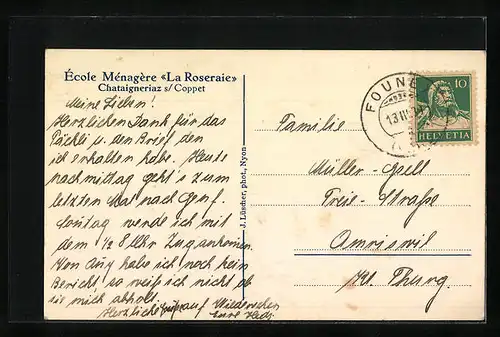 École Ménagère «La Roseraie»
Chataigneriaz s/ Coppet
Meine Lieben!
Herzlichen Dank für das
Päckli u. den Brief den
ich erhalten habe. Heute
nachmittag geht's zum
letzten Mal nach Genf.
Sontag werde ich mit
dem ½ 8 Uhr Zug ankommen.
Von habe ich noch kein
Bericht, so weiß ich nicht ob
sie mich abholt.
Herzliche auf Wiedersehen
J. Lüscher, phot., Nyon
FOUNEX
13.III
10
HELVETIA
Familie
Müller-
Freie-Straße
Amriswil
Kt. Thurg.